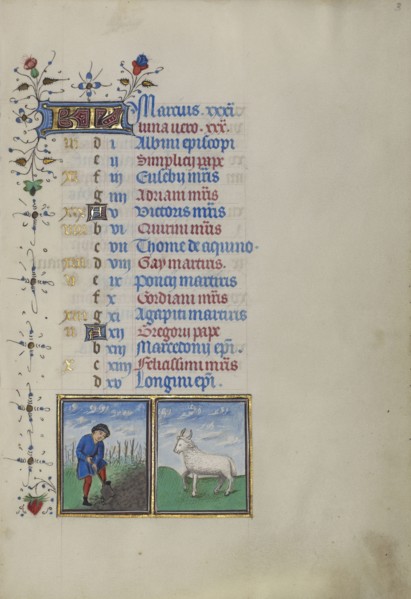 Marcius .xxxi
luna vero .xxx.
iii d i Albini episcopi
e ii Simplicij pape
f iii Eusebij mris
g iiii Adriani mris
A v Victoris mris
b vi Quirini mris
c vii Thome de aquino.
d viii Gay martiris.
e ix Poncij martiris
f x Gordiani mris
g xi Agapiti martiris
A xii Gregorij pape
b xiii Marcedonij epi.
c xiiii Felicissimi mris
d xv Longini epi.